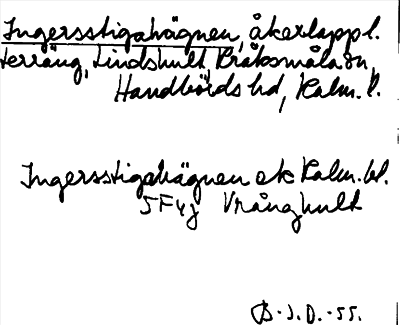 Ingersstigahägnen, åkerlapp l.
terräng, Lindshult, Kråksmåla sn,
Handbörds hd, Kalm. l.
Ingersstigahägnen ek Kalm. bl.
5F4j Vrånghult
B.J.D. -55.